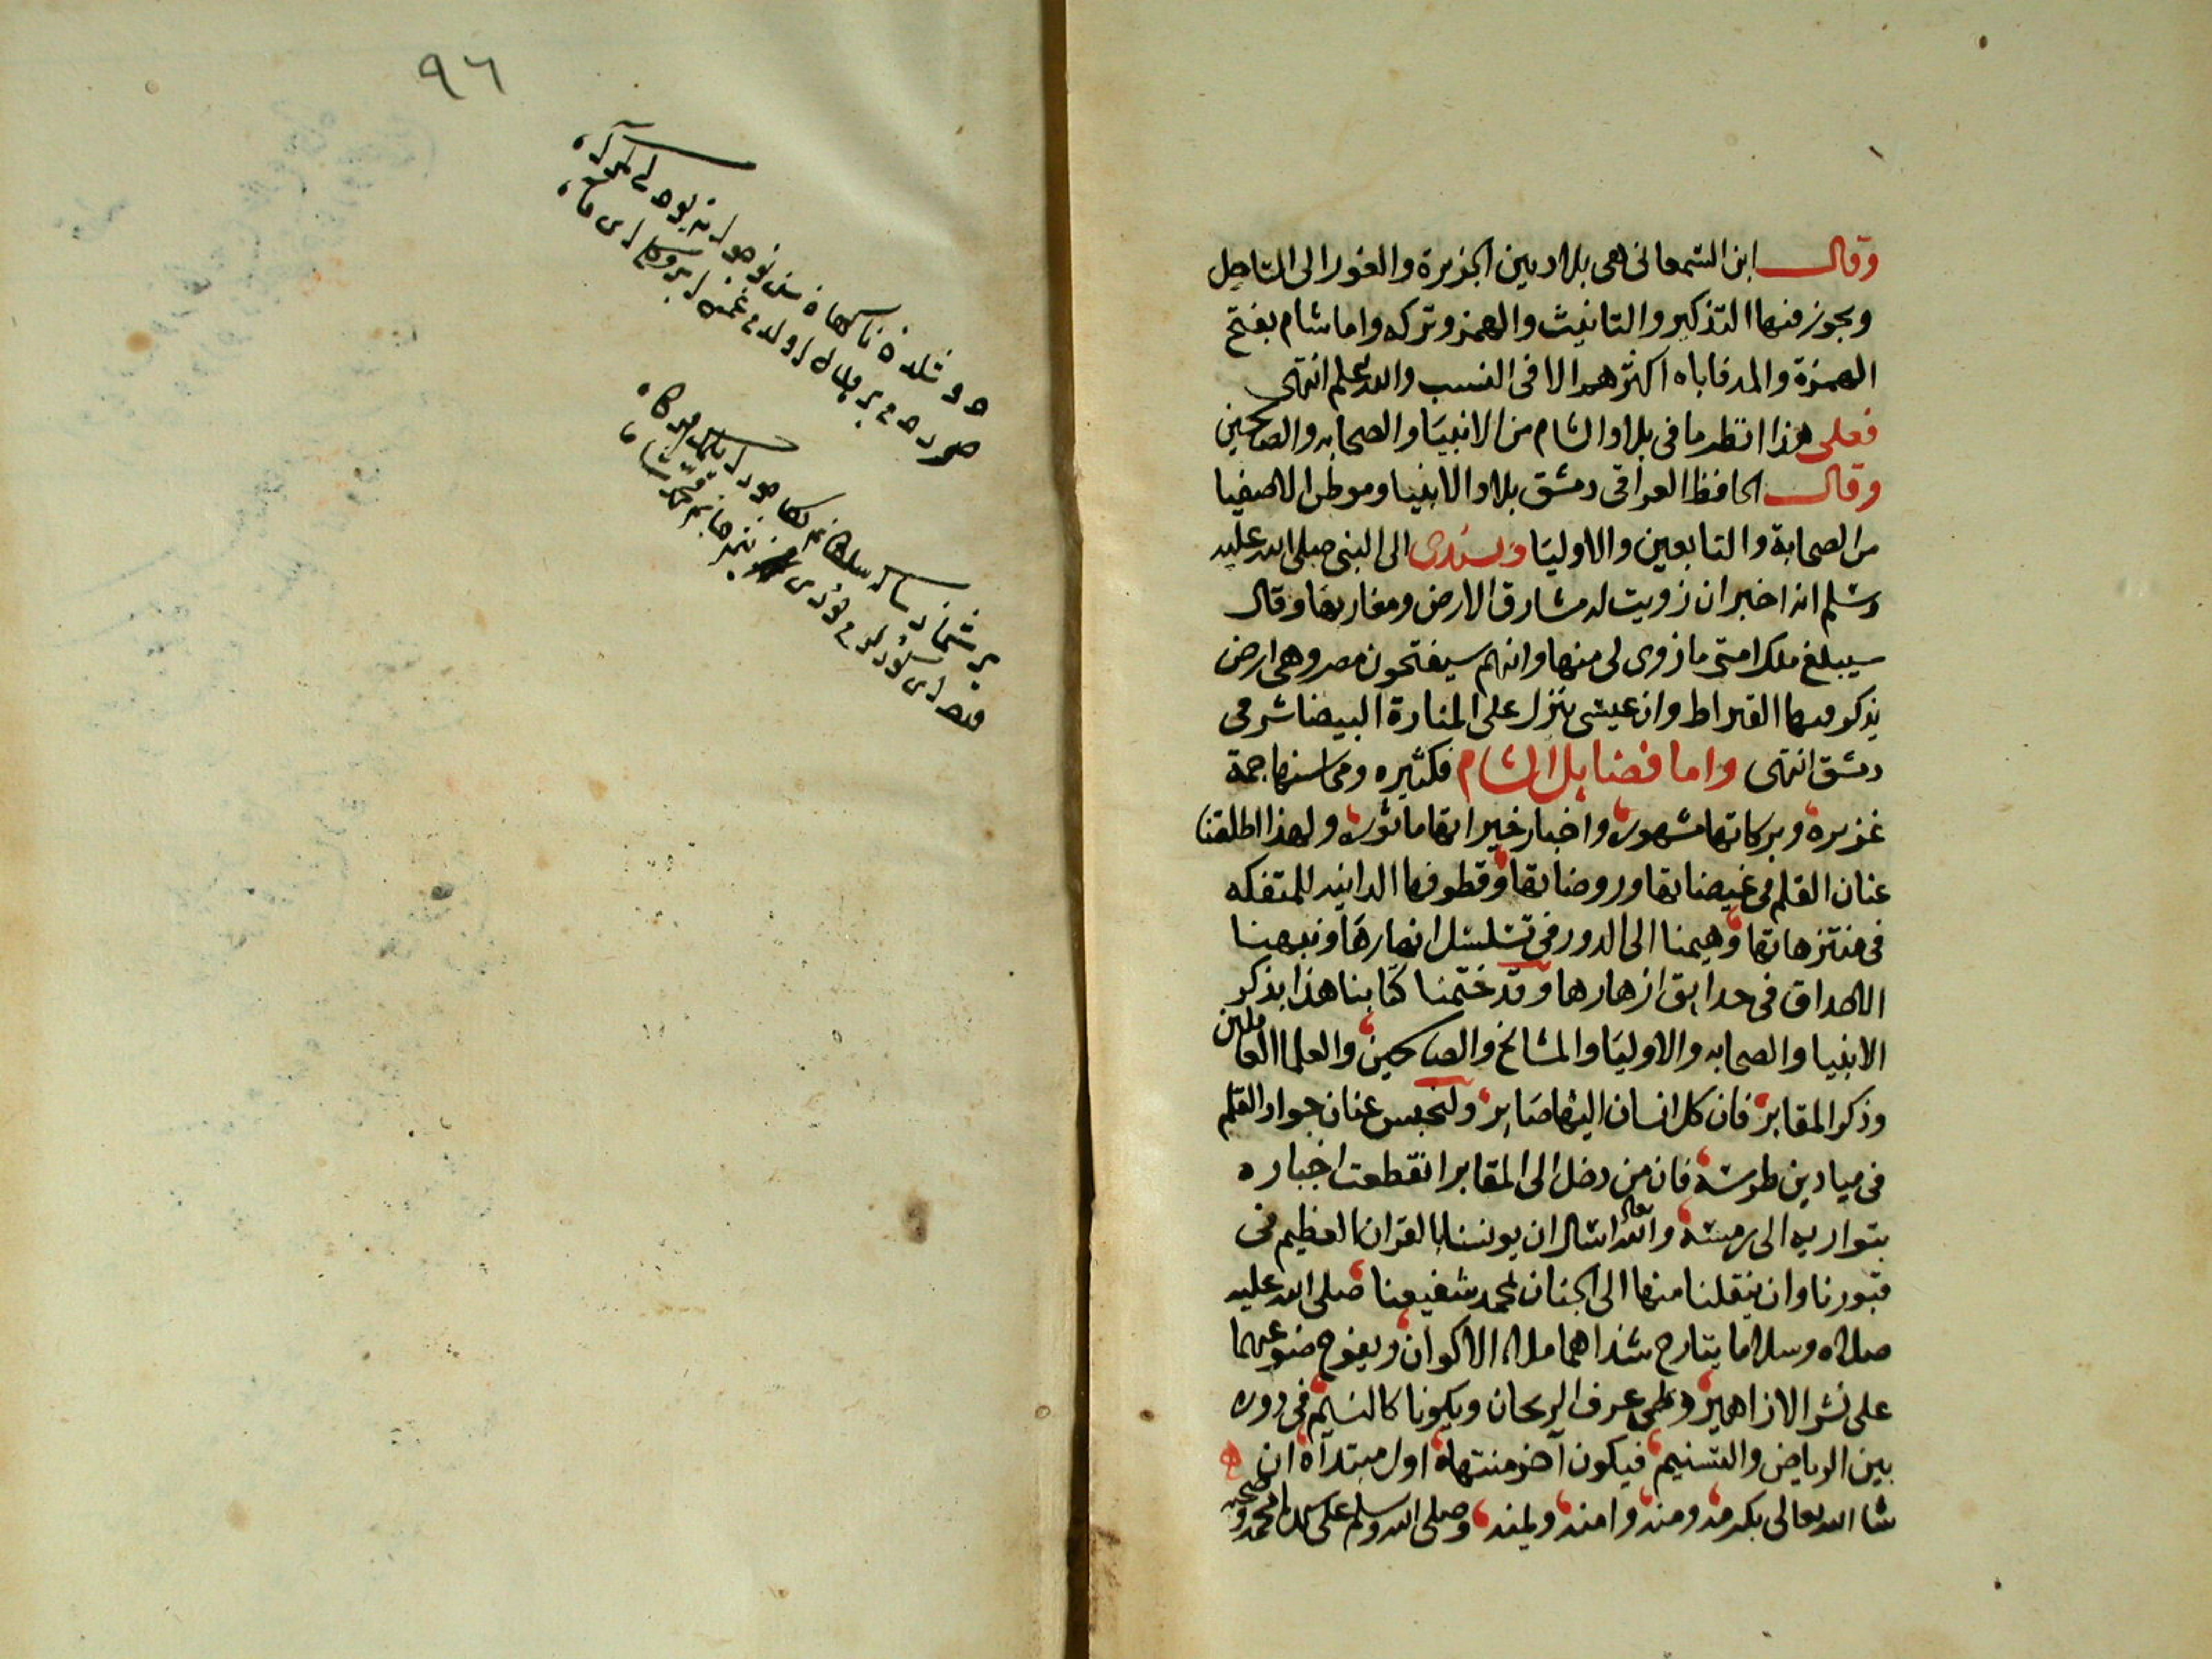 وقال ابن السمعانى هى بلاد بين الجزيرة والغور الى الساحل
ويجوز فيها التذكير والتانيث والهمز وتركه واما شام بفتح
الهمزة والمد فاباه اكثرهم الا فى النسب والله اعلم انتهى
فعلى هذا انظر ما فى بلاد الشام من الانبيا والصحابه والصالحين
وقال الحافظ العراقى دمشق بلاد الانبيا وموطن الاصفيا
من الصحابة والتابعين والاوليا وبسندى الى النبى صلى الله عليه
وسلم انه اخبر ان زويت له مشارق الارض ومغاربها وقال
سيبلغ ملك امتى ما زوى لى منها وانهم سيفتحون مصر وهى ارض
يذكر فيها القيراط وان عيسى ينزل على المنارة البيضا شرقى
دمشق انتهى واما فضايل الشام فكثيره ومحاسنها جمة
غزيره وبركاتها مشهوره واخبار خيراتها ماثوره ولهذا اطلقنا
عنان القلم فى غيضاتها وروضاتها وقطوفها الدانيه للمتفكه
فى منتزهاتها وهيمنا الى الدور فى تسلسل انهارها ونبهنا
الاحداق فى حدايق ازهارها وقد ختمنا كتابنا هذا بذكر
الانبيا والصحابه والاوليا والمشائخ والصالحين والعلما العاملين
وذكر المقابر فان كل انسان اليها صاير ولنحبس عنان جواد القلم
فى ميادين طرسه فان من دخل الى المقابر انقطعت اخباره
بتواريه الى رمسه والله تعالى اسال ان يونسنا بالقران العظيم فى
قبورنا وان ينقلنا منها الى الجنان بمحمد شفيعنا صلى الله عليه
صلاه وسلاما يتارج شذاهما ملا الاكوان ويفوح ضوعهما
على نشر الازاهير وطى عرف الريحان ويكونا كالنسيم فى دوره
بين الرياض والتسنيم فيكون آخر منتهاه اول مبتدآه ان
شا الله تعالى بكرمه ومنه وامنه ويمنه وصلى الله وسلم على سيدنا محمد وصحبه
٩٦